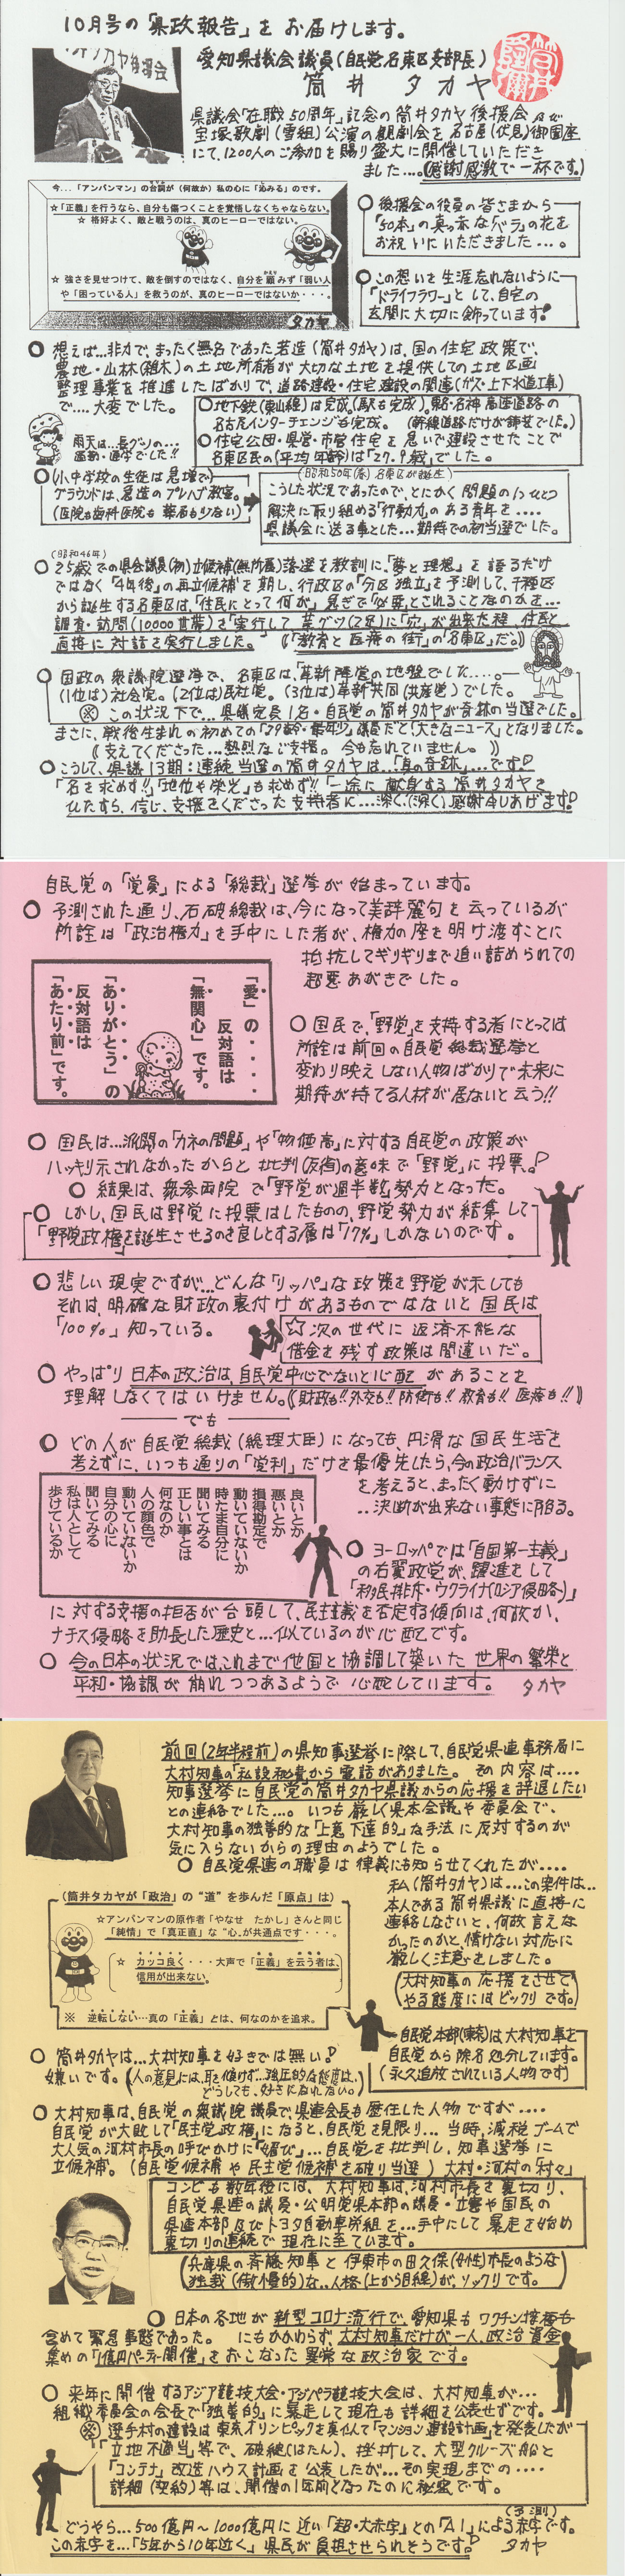 10月号の「県政報告」をお届けします。
愛知県議会議員(自民党名東区支部長)
筒井 タカヤ
県議会「在職50周年」記念の筒井タカヤ後援会及び
宝塚歌劇(雪組)公演の観劇会を名古屋(伏見)御園座
にて、1200人のご参加を賜り盛大に開催していただき
ました…。(感謝感激で一杯です。)
今...「アンパンマン」の台詞が(何故か)私の心に「沁みる」のです。
☆「正義」を行うなら、自分も傷つくことを覚悟しなくちゃならない。
☆ 格好よく、敵と戦うのは、真のヒーローではない。
☆ 強さを見せつけて、敵を倒すのではなく、自分を顧みず「弱い人」
や「困っている人」を救うのが、真のヒーローではないか・・・。
タカヤ
○ 後援会の役員の皆さまから
「50本」の真っ赤な「バラ」の花を
お祝いにいただきました…。
○ この想いを生涯忘れないように
「ドライフラワー」として、自宅の
玄関に大切に飾っています!
○ 想えば…非力で、まったく無名であった若造(筒井タカヤ)は、国の住宅政策で、
農地・山林(雑木)の土地所有者が大切な土地を提供しての土地区画
整理事業を推進したばかりで、道路建設・住宅建設の関連(ガス・上下水道工事)
で…大変でした。
○地下鉄(東山線)は完成。(駅も完成)。東名・名神高速道路の
名古屋インターチェンジも完成。(幹線道路だけが舗装でした。)
○住宅公団・県営・市営住宅を急いで建設させたことで
名東区民の(平均年齢)は「27.9歳」でした。
雨天は…長グツの…
通勤・通学でした!!
○ (小中学校の生徒は急増で)
グラウンドは、急造のプレハブ教室。
(医院も歯科医院も薬局も少ない)
(昭和50年(春)名東区が誕生)
こうした状況であったので、とにかく問題の1つひとつ
解決に取り組める「行動力」のある青年を….
県議会に送る事とした…期待での初当選でした。
(昭和46年)
○ 25歳での県会議員(初)立候補(無所属)落選を教訓に、「夢と理想」を語るだけ
ではなく「4年後」の再立候補を期し、行政区の「分区独立」を予測して、千種区
から誕生する名東区は、「住民にとって何が」急ぎで「必要」とされることなのかを…
調査・訪問(10000世帯)を「実行」して革グツ(2足)に「穴」が出来た程、住民と
直接に対話を実行しました。(「教育と医療の街」の「名東区」だ。)
○ 国政の衆議院選挙で、名東区は、「革新陣営の地盤でした….。
(1位は)社会党。(2位は)民社党。(3位は)革新共同(共産党)でした。
※ この状況下で…県議定員1名・自民党の筒井タカヤが奇跡の当選でした。
まさに、戦後生まれの初めての「29齢・最年少」議員だと「大きなニュース」となりました。
《支えてくださった…熱烈なご支援。今も忘れていません。》
○こうして、県議13期:連続当選の筒井タカヤは…「真の奇跡」…です!
「名を求めず!!」「地位や栄光」も求めず!!「一途に献身する筒井タカヤを
ひたすら、信じ、支援をくださった支持者に…深く、(深く)感謝申しあげます!
自民党の「党員」による「総裁」選挙が始まっています。
○ 予測された通り、石破総裁は、今になって美辞麗句を云っているが
所詮は「政治権力」を手中にした者が、権力の座を明け渡すことに
抵抗してギリギリまで追い詰められての
超悪あがきでした。
「愛」の・・・・
反対語は
「無関心」です。
「ありがとう」の
反対語は
「あたり前」です。
○ 国民で、「野党」を支持する者にとっては
所詮は前回の自民党総裁選挙と
変わり映えしない人物ばかりで未来に
期待が持てる人材が居ないと云う!!
○ 国民は…派閥の「カネの問題」や「物価高」に対する自民党の政策が
ハッキリ示されなかったからと批判(反省)の意味で「野党」に投票。!
○ 結果は、衆参両院で「野党が過半数」勢力となった。
○ しかし、国民は野党に投票はしたものの、野党勢力が結集して
「野党政権」を誕生させるのを良しとする層は「17%」しかないのです。
○ 悲しい現実ですが…どんな「リッパ」な政策を野党が示しても
それは、明確な財政の裏付けがあるものではないと国民は
「100%」知っている。
☆次の世代に返済不能な
借金を残す政策は間違いだ。
○ やっぱり日本の政治は、自民党中心でないと心配があることを
理解しなくてはいけません。《財政も!!外交も!!防衛も!!教育も!!医療も!!》
でも
○ どの人が自民党総裁(総理大臣)になっても、円滑な国民生活を
考えずに、いつも通りの「党利」だけを最優先したら、今の政治バランス
を考えると、まったく動けずに
…決断が出来ない事態に陥る。
良いとか
悪いとか
損得勘定で
動いていないか
時たま自分に
聞いてみる
正しい事とは
何なのか
人の顔色で
動いていないか
自分の心に
聞いてみる
私は人として
歩けているか
○ ヨーロッパでは「自国第一主義」
の右翼政党が、躍進をして
「移民排斥・ウクライナ(ロシア侵略)」
に対する支援の拒否が台頭して、民主主義を否定する傾向は、何故か、
ナチス侵略を助長した歴史と…似ているのが心配です。
○ 今の日本の状況では、これまで他国と協調して築いた世界の繁栄と
平和・協調が崩れつつあるようで心配しています。 タカヤ
前回(2年半程前)の県知事選挙に際して、自民党県連事務局に
大村知事の「私設秘書」から電話がありました。その内容は….
知事選挙に自民党の筒井タカヤ県議からの応援を辞退したい
との連絡でした…。いつも厳しく県本会議や委員会で、
大村知事の独善的な「上意下達的」な手法に反対するのが
気に入らないからの理由のようでした。
○ 自民党県連の職員は律義にも知らせてくれたが….
私(筒井タカヤ)は…この案件は…
本人である筒井県議に直接に
連絡しなさいと、何故言えな
かったのかと、情けない対応に
厳しく注意をしました。
(大村知事の応援をさせて
やる態度にはビックリです。)
(筒井タカヤが「政治」の“道”を歩んだ「原点」は)
☆アンパンマンの原作者「やなせ たかし」さんと同じ
「純情」で「真正直」な“心”が共通点です・・・。
☆ カッコ良く・・・大声で「正義」を云う者は、
信用が出来ない。
※ 逆転しない…真の「正義」とは、何なのかを追求。
自民党本部(東京)は大村知事を
自民党から除名処分しています。
(永久追放されている人物です)
○ 筒井タカヤは…大村知事を好きでは無い!
嫌いです。(人の意見には、耳を傾けず…独正的な態度は、
どうしても、好きになれない。)
○ 大村知事は、自民党の衆議院議員で、県連会長も歴任した人物ですが….
自民党が大敗して「民主党政権」になると、自民党を見限り…当時、減税ブームで
大人気の河村市長の呼びかけに「媚び」…自民党を批判し、知事選挙に
立候補。(自民党候補や民主党候補を破り当選)大村・河村の「村々」
コンビも数年後には、大村知事は、河村市長を裏切り、
自民党県連の議員・公明党県本部の議員・立憲や国民の
県連本部及びトヨタ自動車労組を…手中にして暴走を始め
裏切りの連続で現在に至ています。
(兵庫県の斉藤知事と伊東市の田久保(女性)市長のような
独裁(傲慢的)な..人格(上から目線)が、ソックリです。
○ 日本の各地が新型コロナ流行で、愛知県もワクチン接種も
含めて緊急事態であった。にもかかわらず、大村知事だけが一人、政治資金
集めの「1億円パーティー開催」をおこなった異常な政治家です。
○ 来年に開催するアジア競技大会・アジパラ競技大会は、大村知事が…
組織委員会の会長で「独善的」に暴走して現在も詳細を公表せずです。
※ 選手村の建設は東京オリンピックを真似て「マンション建設計画」を発表したが
「立地不適当」等で、破綻(はたん)、挫折して、大型クルーズ船と
「コンテナ」改造ハウス計画を公表したが…その実現までの….
詳細(契約)等は、開催の1年前となったのに秘密です。
(予測)
どうやら…500億円~1000億円に近い「超・大赤字」との「AI」による赤字です。
この赤字を…「5年から10年近く」県民が負担させられそうです。! タカヤ